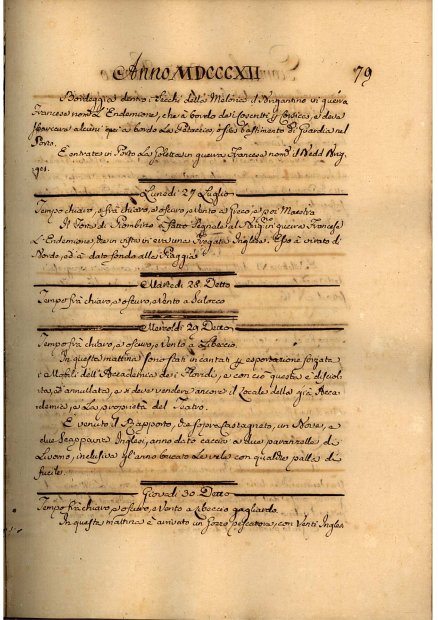 Anno MDCCCXII
79
Bordeggia dentro i Secchi della Meloria il Brigantino in guerra
Francese nomo L'Endemione, che à bordo dei Coscritti Corsica, e deve
sbarcare alcuni qui a bordo La Patachio, ò sia bastimento di Guardia nel
Porto.
È entrata in Porto La Goletta in guerra Francese nom.
Lunedi 27 Luglio
Tempo chiaro, e frà chiaro, e oscuro, e vento a Greco, e poi Maestro
Il Forte di Piombino à fatto Segnale al Brig. in guerra Francese
L'Endemione, che in vista vi era una Fregata Inglese. Esso à virato di
Bordo, ed à dato fondo alle Spiaggie
Martedi 28 Detto
Tempo frà chiaro, e oscuro, e vento a Scilocco
Mercoldi 29 Detto
Tempo frà chiaro, e oscuro, e vento a Libeccio.
In questa mattina sono stati incantati p esportazione forzata
i Mobili dell'Accademia dei Floridi, e con ciò questa è disciol-
ta, ed annullata, e si deve vendere ancora il Locale della già Acca-
demia, e La proprietà del Teatro.
È venuto il Rapporto, che sopra Castagneto, un Nave, e
due Scappavie Inglesi, anno dato caccia a due paranzelle di
Livorno, inclusive gl'anno bucato Le vele con qualche palla di
fucile.
Giovedi 30 Detto
Tempo frà chiaro, e oscuro, e vento a Libeccio gagliardo.
In questa mattina è arrivato un Gozzo Pescatore, con Venti Inglesi